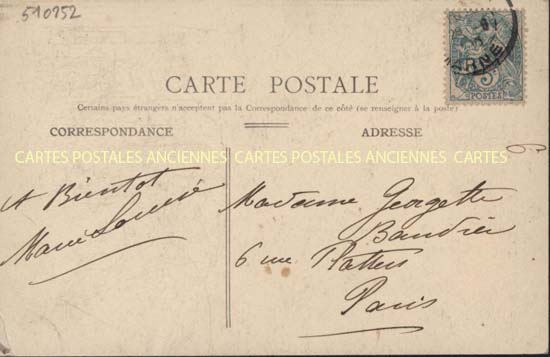 510252
CARTE POSTALE
Certains pays étrangers n'acceptent pas la Correspondance de ce côté (se renseigner à la poste)
CORRESPONDANCE
ADRESSE
CARTES POSTALES ANCIENNES CARTES POSTALES ANCIENNES CARTES
A Bientot
Marie Louise
Madame Georgette
Baudier
6 rue
Paris
POSTES
MARNE